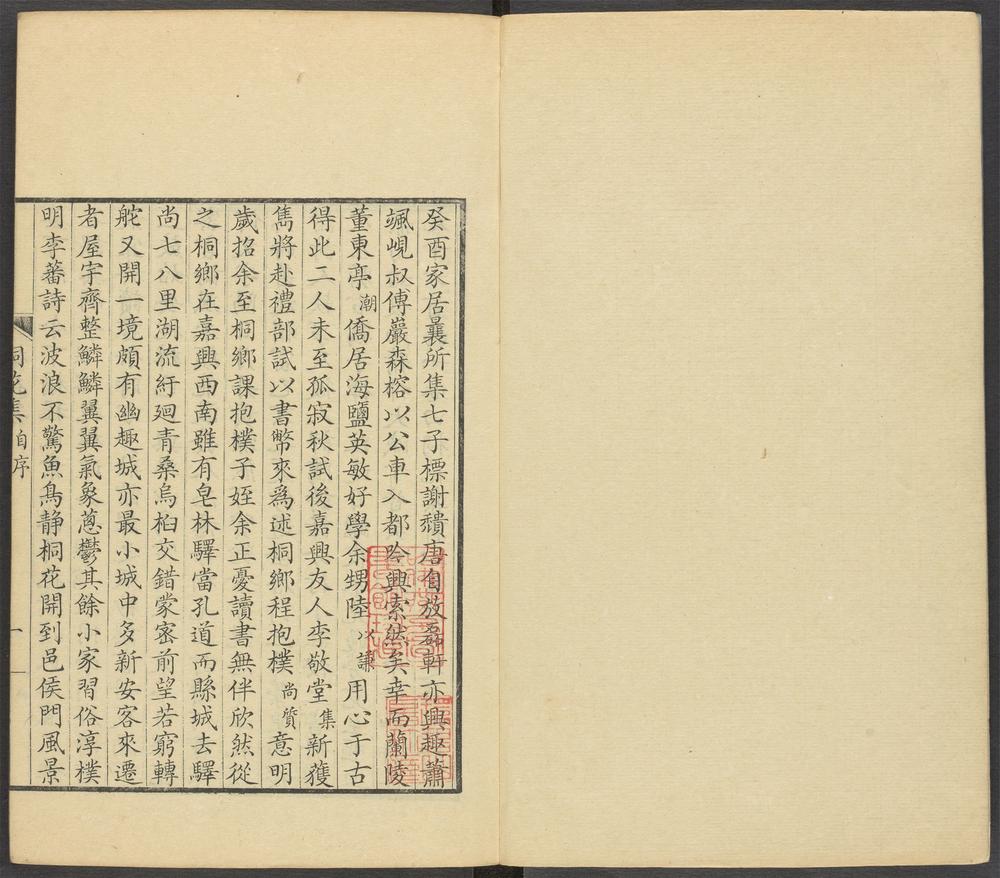 癸酉家居曩所集七子標謝穨唐自放磊軒亦興趣蕭
颯峴叔傅巖森榕以公車入都吟興索然矣幸而蘭陵
董東亭潮僑居海鹽英敏好學余甥陸以謙用心于古
得此二人未至孤寂秋試後嘉興友人李敬堂集新獲
雋將赴禮部試以書幣來爲述桐鄉程抱樸尚質意明
歲招余至桐鄉課抱樸子姪余正憂讀書無伴欣然從
之桐鄉在嘉興西南雖有皂林驛當孔道而縣城去驛
尚七八里湖流紆廻青桑烏桕交錯蒙密前望若窮轉
舵又開一境頗有幽趣城亦最小城中多新安客來遷
者屋宇齊整鱗鱗翼翼氣象蔥鬱其餘小家習俗淳樸
明李蕃詩云波浪不驚魚鳥静桐花開到邑侯門風景
桐花集 自序 一